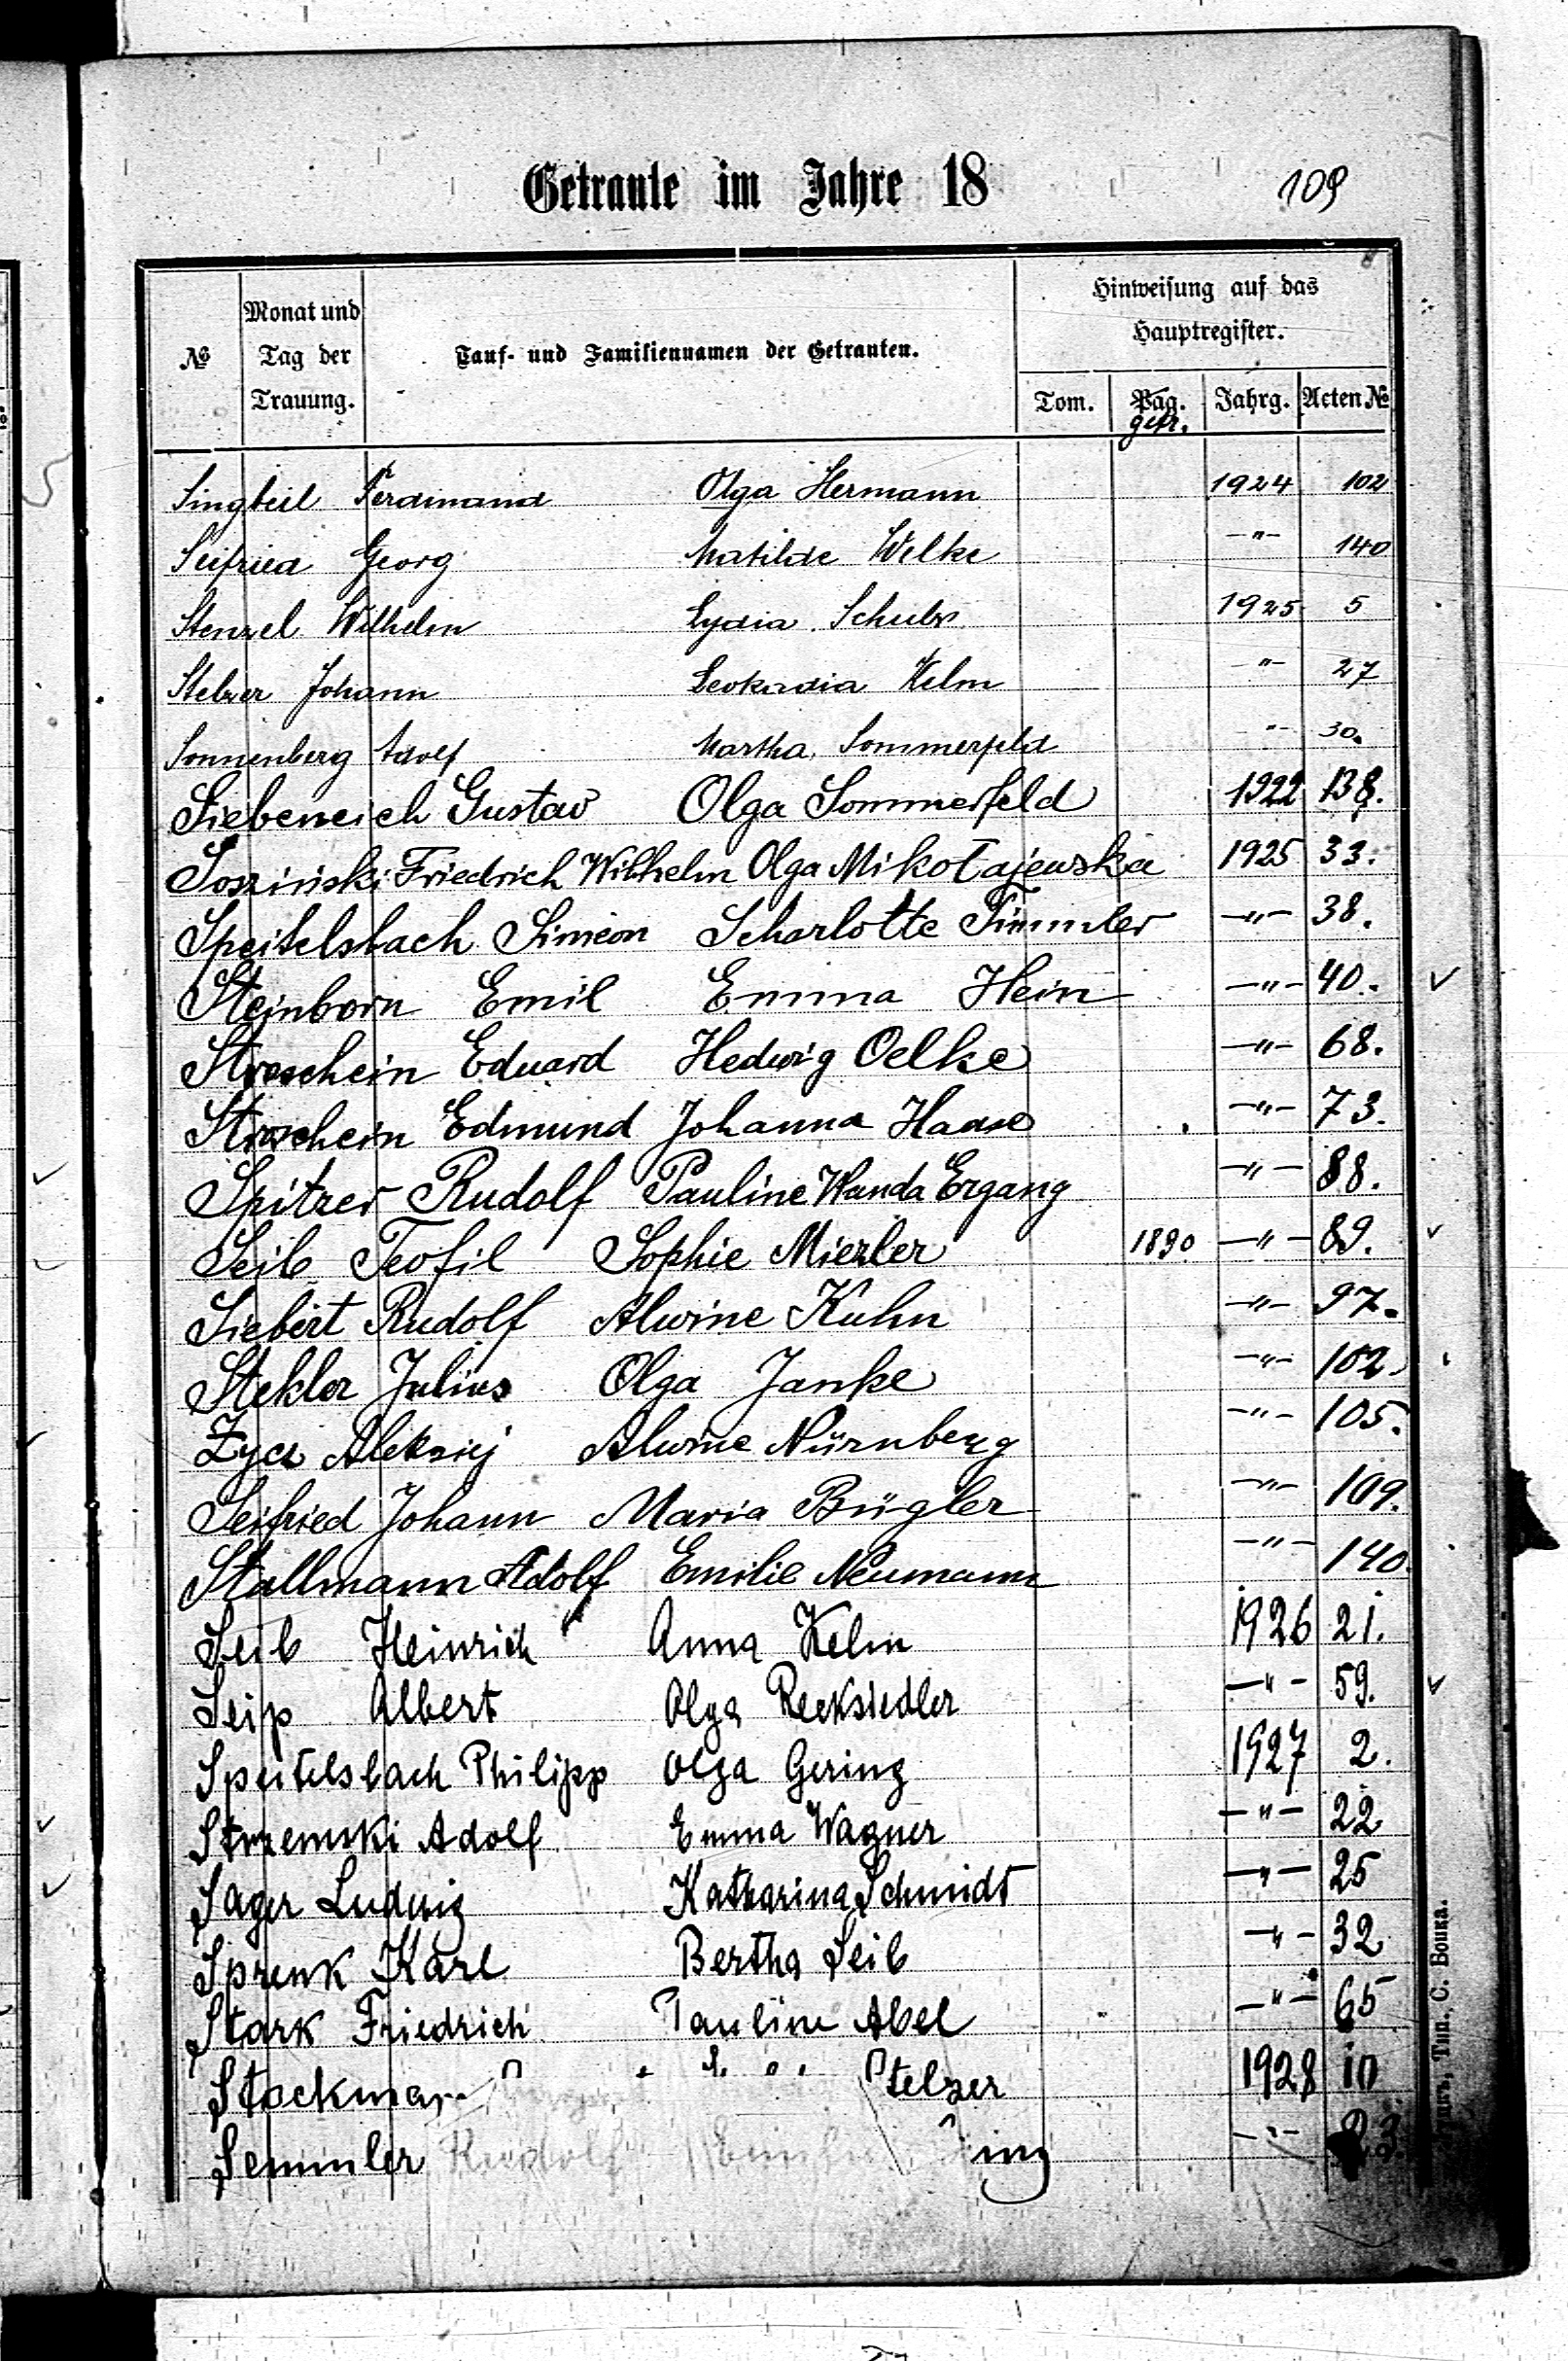 Getraute im Jahre 18
109
№ Monat und Tag der Trauung. Tauf- und Familiennamen der Getrauten. Hinweisung auf das Hauptregister.
Tom. Pag. Jahrg. Acten №
geb.
Singbeil Ferdinand Olga Hermann 1924 102
Seifried Georg Matilde Welke -"- 140
Stenzel Wilhelm Lydia Schulz 1925 5
Stelzer Johann Leokadia Kelm -"- 27
Sonnenberg Adolf Martha Sommerfeld -"- 30.
Siebeneich Gustav Olga Sommerfeld 1922 138.
Sosziński Friedrich Wilhelm Olga Mikołajewska 1925 33.
Speitelsbach Simeon Scharlotte Timmler -"- 38.
Steinborn Emil Emma Hein -"- 40.
Stroschein Eduard Hedwig Oelke -"- 68.
Stroschein Edmund Johanna Haase -"- 73.
Spitzer Rudolf Pauline Wanda Ergang -"- 88.
Seib Teofil Sophie Miezler 1890. -"- 89.
Siebert Rudolf Alwine Kuhn -"- 97.
Stekler Julius Olga Janke -"- 102.
Zycz Aleksiej Alwine Nürnberg -"- 105.
Seifried Johann Maria Bügler -"- 109.
Stallmann Adolf Emilie Neumann -"- 140.
Seib Heinrich Anna Kelm 1926 21.
Seip Albert Olga Recksiedler -"- 59.
Speitelsbach Philipp Olga Gering 1927 2.
Strzemski Adolf Emma Wagner -"- 22
Sager Ludwig Katharina Schmidt -"- 25
Sprenk Karl Bertha Seib -"- 32
Stark Friedrich Pauline Abel -"- 65
Stockman Stelzer 1928 10
Semmler Rudolf -"-
Тип. С. Вошка.